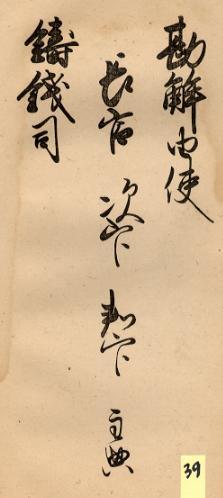 勘解由使
長官 次官 判官 主典
鋳銭司
39